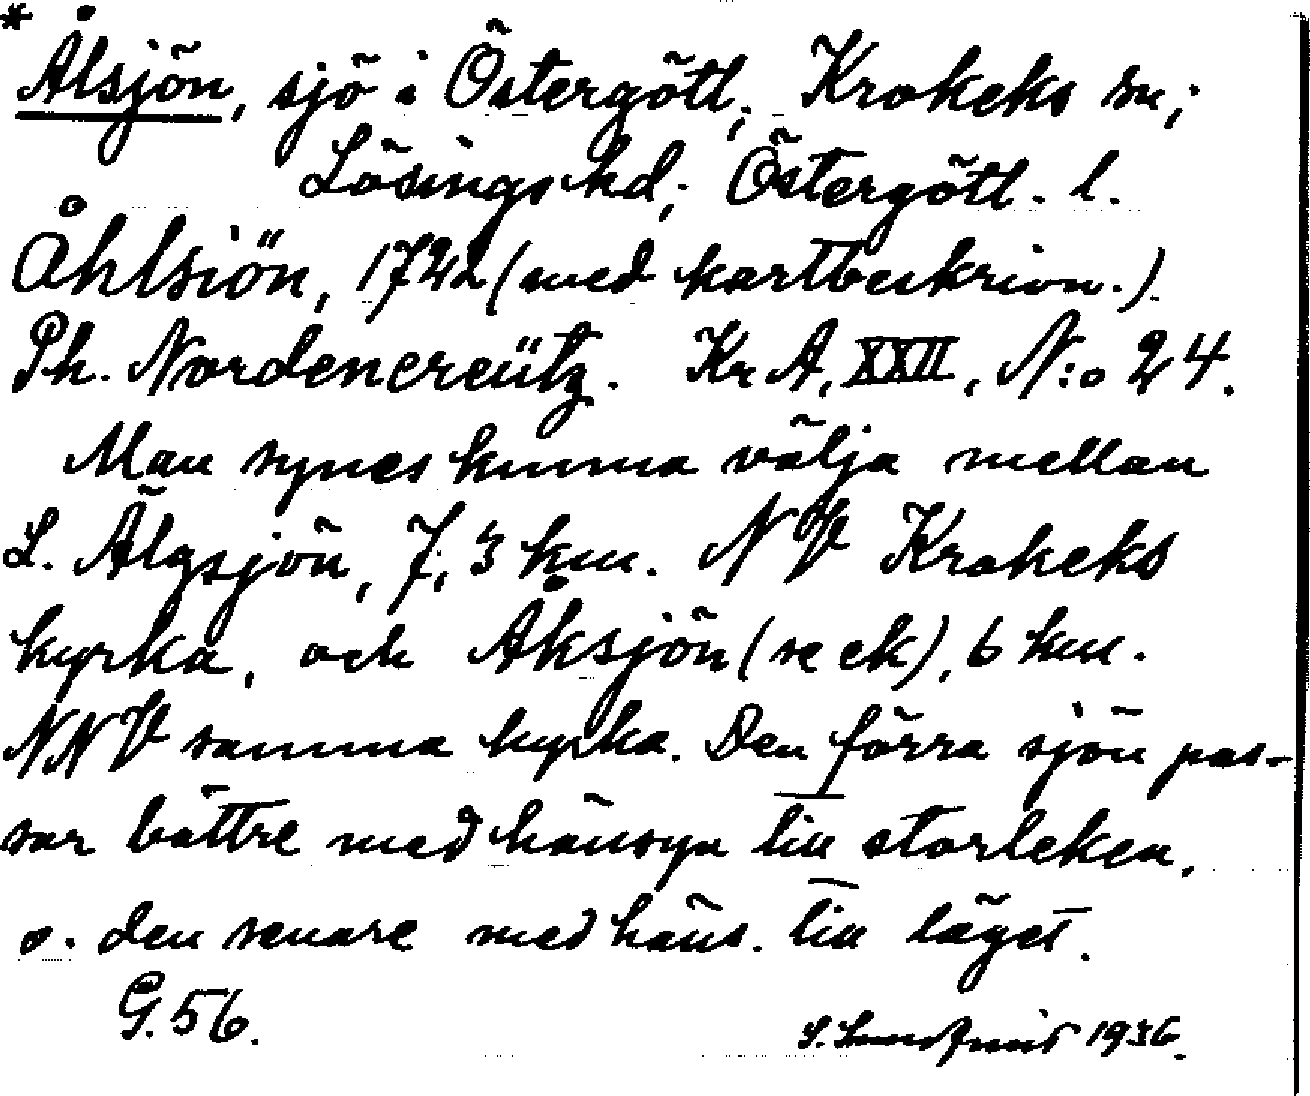 * Ålsjön, sjö i Östergötl., Krokeks sn;
Lösings hd; Östergötl. l.
Åhlsiön, 1742 (med kartbeskrivn.).
Ph. Nordencreütz. KrA, XXII, N:o 24.
Man synes kunna välja mellan
L. Älgsjön, 7,3 km. NV Krokeks
kyrka, och Åksjön (se ek), 6 km.
NNV samma kyrka. Den förra sjön pas-
sar bättre med hänsyn till storleken,
o. den senare med häns. till läget.
G. 56.
1936.